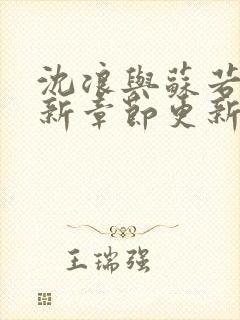 沈浪與蘇若
新章節更新
王瑞强